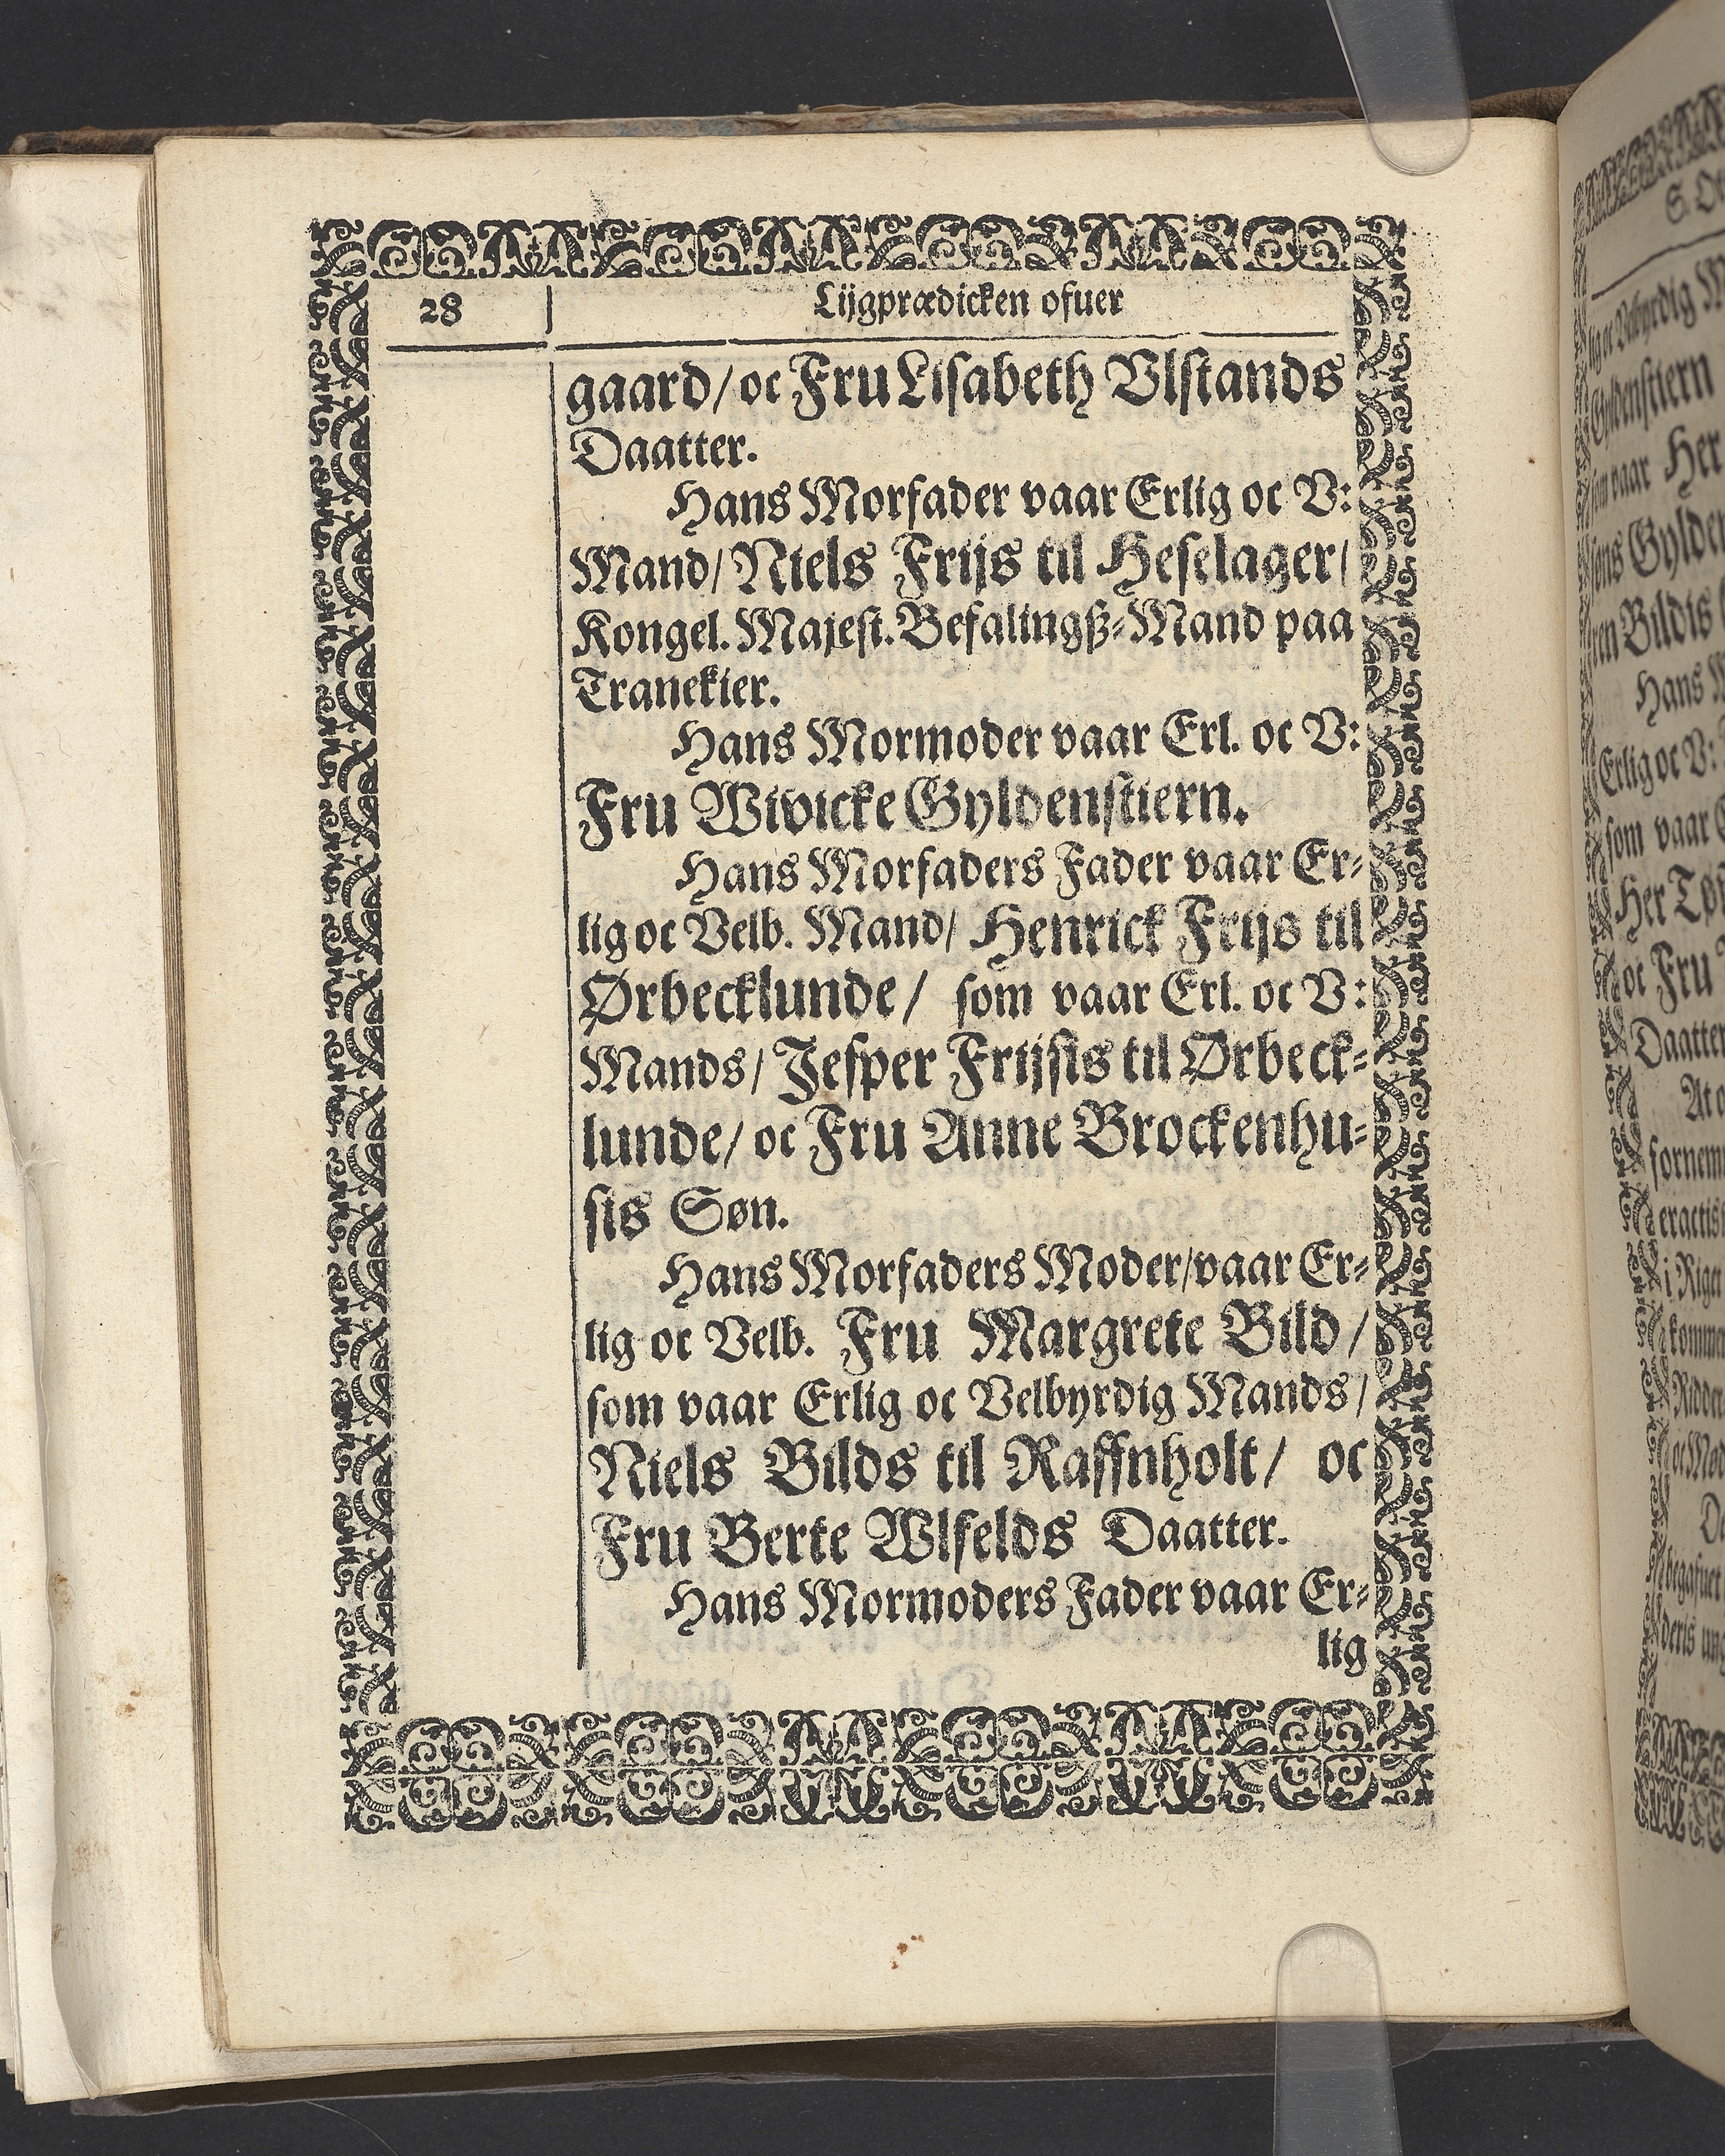 28
Lijgprædicken ofuer
gaard/ oc Fru Lisabeth Vlstands
Daatter.
Hans Morfader vaar Erlig oc V:
Mand/ Niels Frijs til Heselager/
Kongel. Majest. Befalingß-Mand paa
Tranekier.
Hans Mormoder vaar Erl. oc V:
Fru Wivicke Gyldenstiern.
Hans Morfaders Fader vaar Er-
lig oc Velb. Mand/ Henrick Frijs til
Ørbecklunde/ som vaar Erl. oc V:
Mands/ Jesper Frijsis til Ørbeck-
lunde/ oc Fru Anne Brockenhu-
sis Søn.
Hans Morfaders Moder/ vaar Er-
lig oc Velb. Fru Margrete Bild/
som vaar Erlig oc Velbyrdig Mands/
Niels Bilds til Raffnholt/ oc
Fru Berte Wlfelds Daatter.
Hans Mormoders Fader vaar Er-
lig